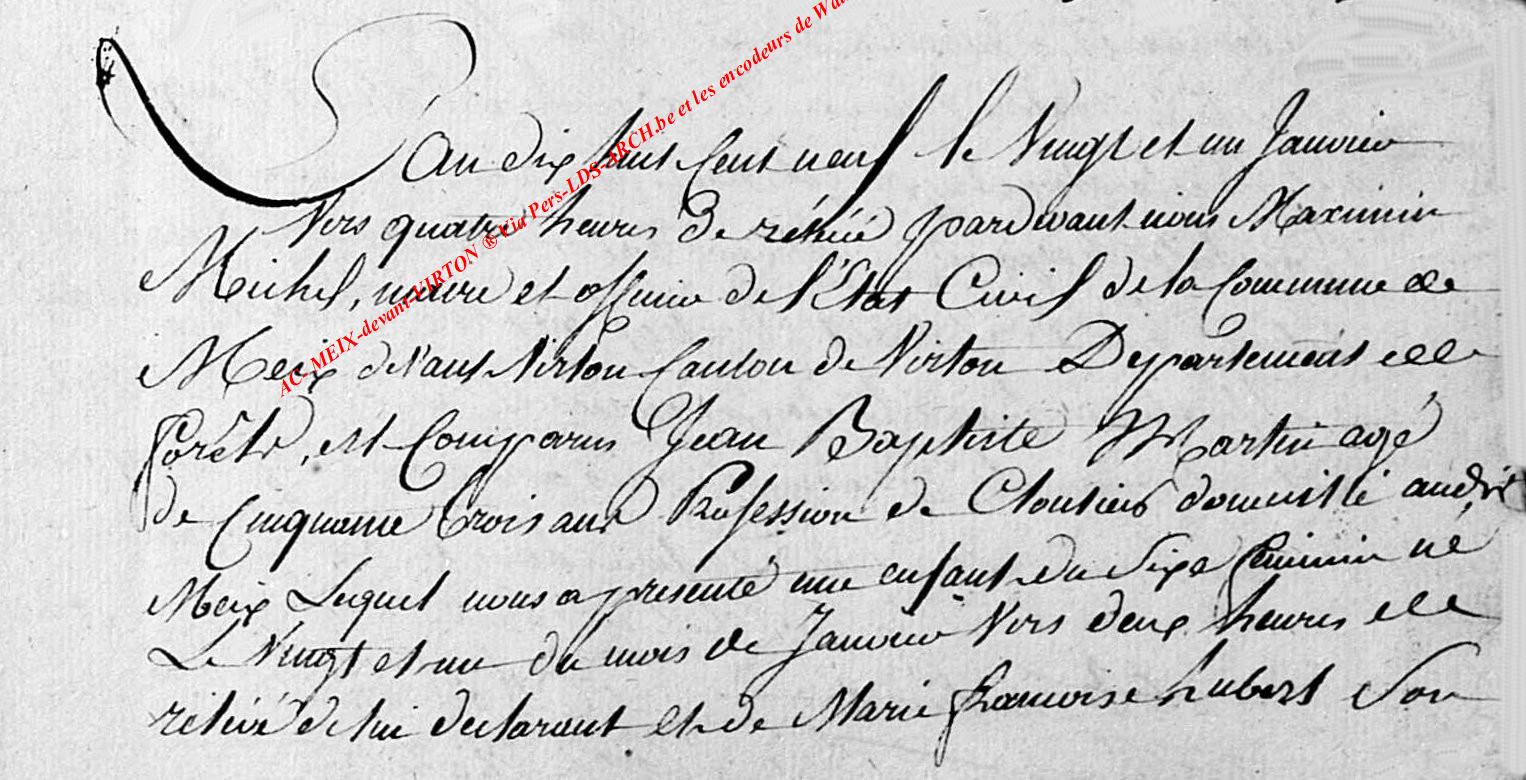 L'An dix huit Cent neuf le Vingt et un Janvier
Vers quatre heures de relevée pardevant nous Maximin
Michel, maire et officier de l'État Civil de la Commune de
Meix devant Virton Canton de Virton Departement de
forêts, est Comparus Jean Baptiste Martin agé
de Cinquante trois ans Profession de Cloutier domicilié audit
Meix Lequel nous a presenté une enfant du Sixe feminin né
Le Vingt et un du mois de Janvier Vers deux heures de
relevé de lui declarant et de Marie françoise hubert Son
AC- MEIX-devant-VIRTON ® Via Pers-LDS-ARCH.be et les encodeurs de